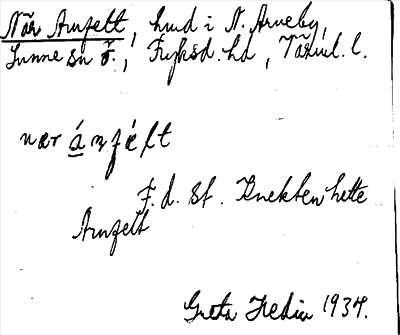 När Arnfelt, hmd i N. Arneby,
Sunne sn ö., Fryksd. hd, Värml. l.
nær ánfélt
F. d. st. Knekten hette
Arnfelt
Greta Hedin 1934.